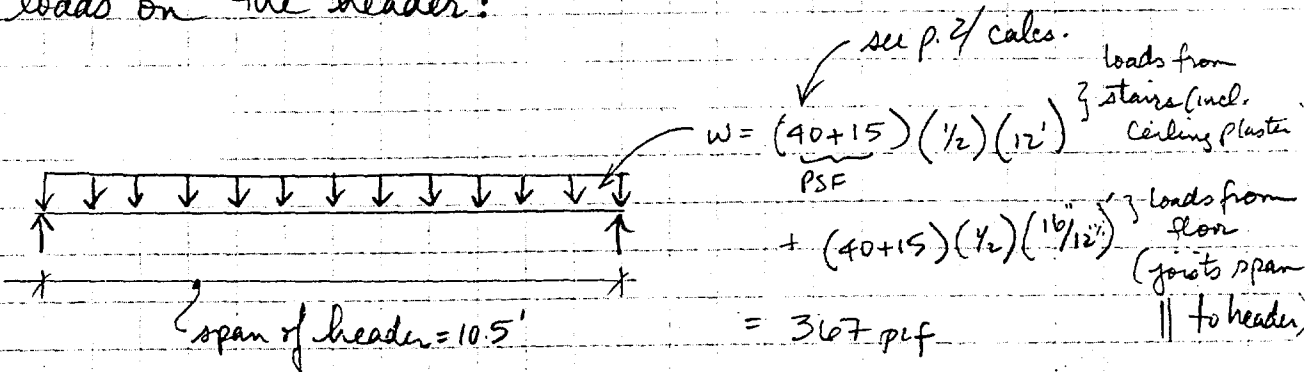 loads on the header:
see p.2/calcs.
w = (40+15)(1/2)(12') } loads from
stairs (incl.
ceiling plaster
PSF
+ (40+15)(1/2)(16"/12"/') } loads from
floor
(joists span
|| to header)
= 367 plf
span of header = 10.5'